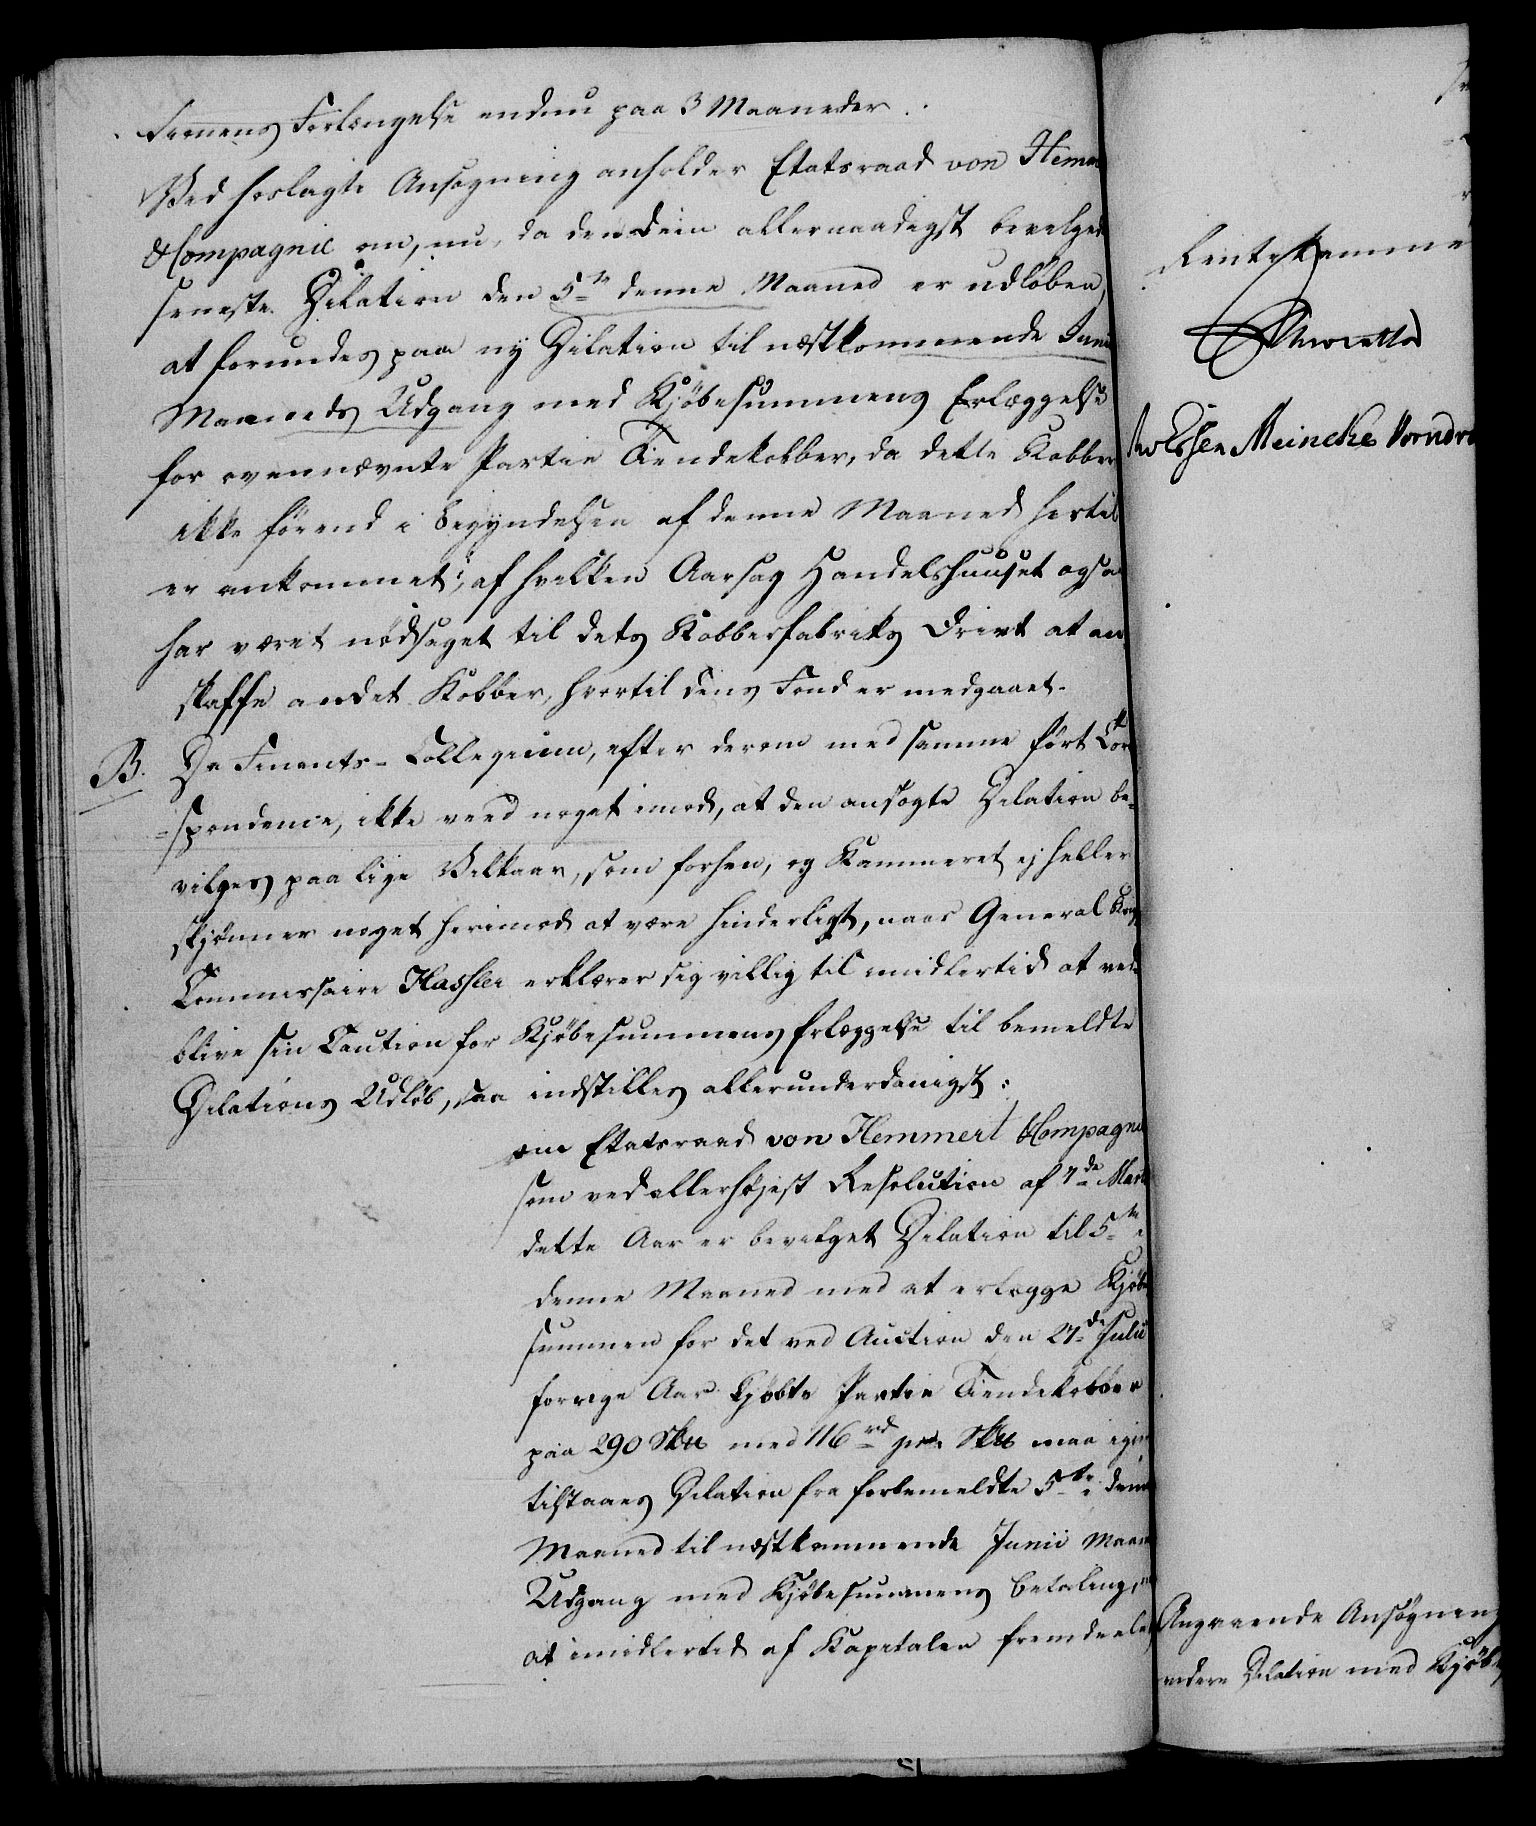 Firmens Forlængelse endnu paa 3 Maaneder.
Ved hoslagte Ansøgning anholder Etatsraad von Hemm
& Compagnie om, nu, da den dem allernaadigst bevilgede
seneste Dilation den 5te denne Maaned er udløben,
at forundes paa ny Dilation til næstkommende Junii
Maaneds Udgang med Kjøbesummens Erlæggelse
for ovennævnte Partie Tiendekobber, da dette Kobber
ikke førend i Begyndelsen af denne Maaned hertil
er ankommet; af hvilken Aarsag Handelshuuset ogsaa
har været nødsaget til dets Kobberfabriks Drivt at an
skaffe andet Kobber, hvortil dens Fond er medgaaet.
B. Da Finants-Collegium, efter derom med samme ført Cor
=spondence, ikke veed noget imod, at den ansøgte Dilation be-
vilges paa lige Vilkaar, som forhen, og Kammeret ej heller
skjønner noget herimod at være hinderligt, naar General Krigs
Commissaire Hassler erklærer sig villig til imidlertid at ved
blive sin Caution for Kjøbesummens Erlæggelse til bemeldte
Dilations Udløb, saa indstilles allerunderdanigst:
om Etatsraad von Hemmert & Compagnie
som ved allerhøjest Resolution af 7de Martii
dette Aar er bevilget Dilation til 5te
denne Maaned med at erlægge Kjøbe
summen for det ved Auction den 27de Julii
forrige Aar kjøbte Partie Tiendekobber
paa 290 Sk℔ med 116 rd pr. Sk℔ maa igjen
tilstaaes Dilation fra forbemeldte 5te denne
Maaned til næstkommende Junii Maaneds
Udgang med Kjøbesummens Betaling,
at imidlertid af Kapitalen fremdeeles
Rentekamme
Meincke Vorndra
Angaaende Ansøgning
videre Dilation med Kjøbe